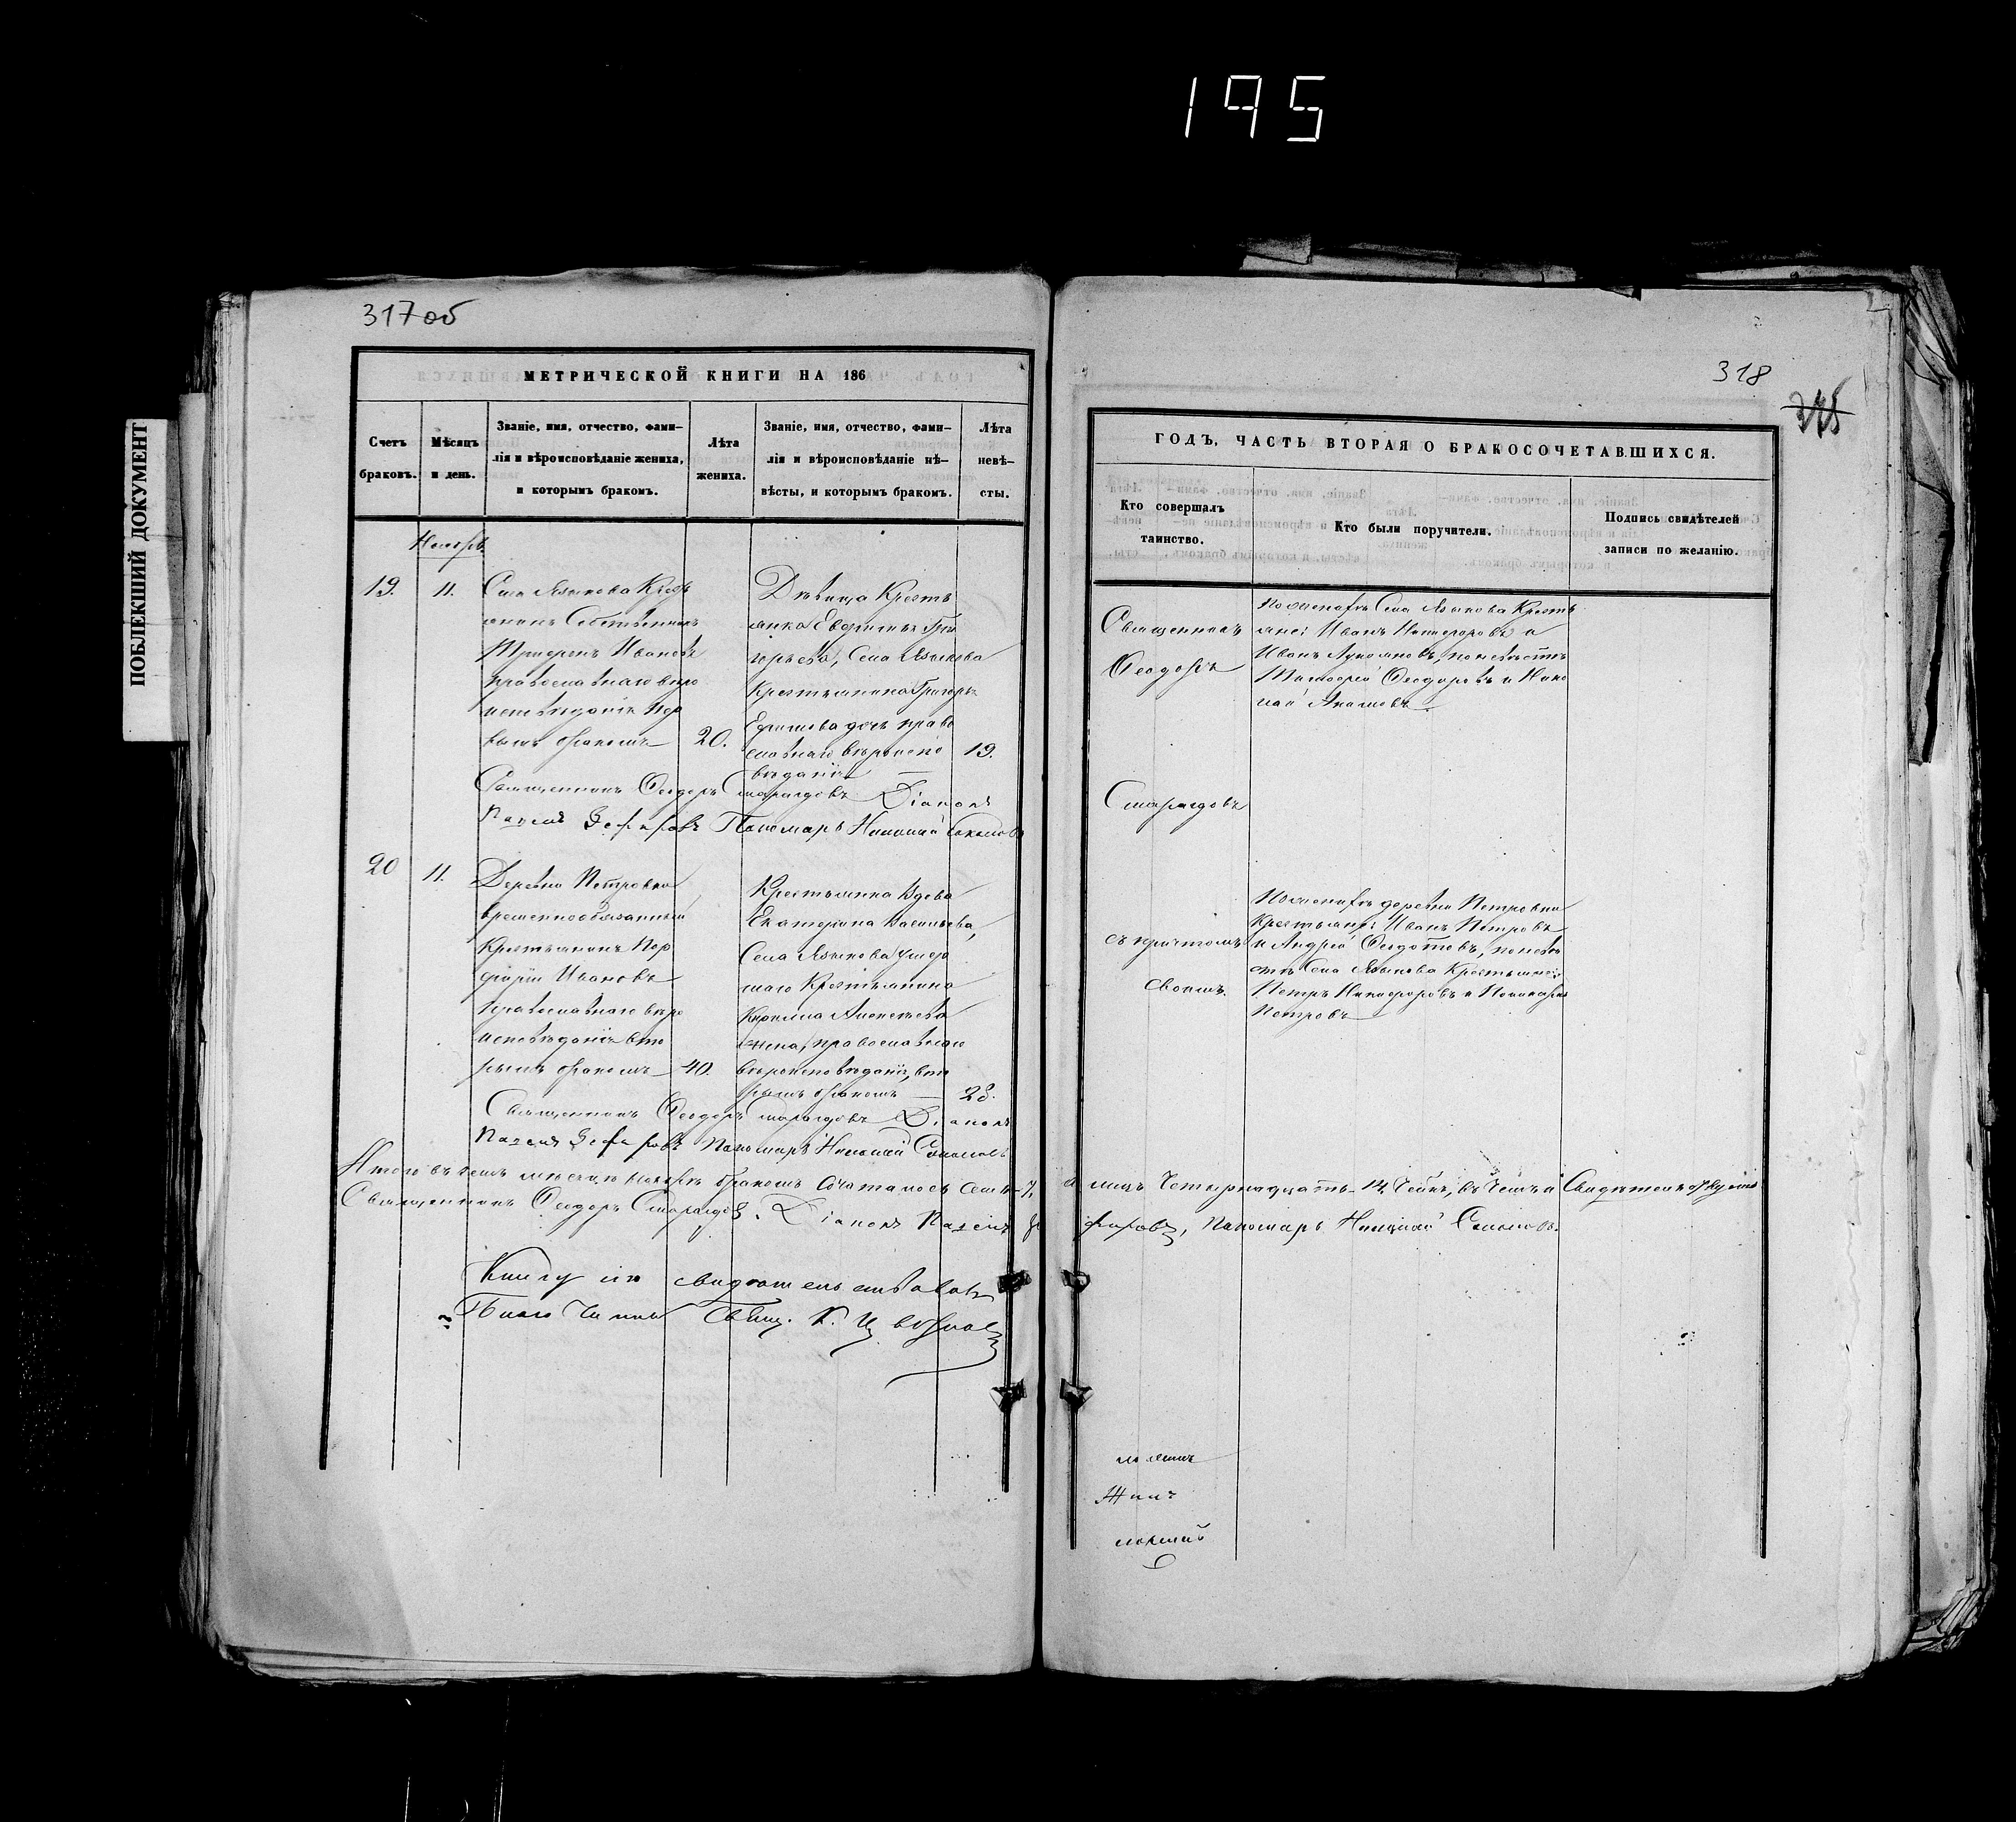 195
ПОБЛЕКШИЙ ДОКУМЕНТ
317 об
МЕТРИЧЕСКОЙ КНИГИ НА 186
Счетъ браковъ.
Мѣсяцъ и день.
Званіе, имя, отчество, фами-
лія и вѣроисповѣданіе жениха,
и которымъ бракомъ.
Лѣта
жениха.
Званіе, имя, отчество, фами-
лія и вѣроисповѣданіе не-
вѣсты, и которымъ бракомъ.
Лѣта
невѣ-
сты.
Ноябрь
19. 11.
Села Языкова Крест
янинъ Собственникъ
Иванов
православнаго вѣро
исповѣданія пер
вымъ бракомъ 20.
Дѣвица Кресть
янка Евфимія Гри
горьева, Села Языкова
Крестьянина Григорья
Ефимова дочь право
славнаго вѣроиспо 19.
вѣданія
Священникъ Ѳеодоръ Смарагдовъ Діаконъ
Зефировъ Пономарь Николай Соколовъ
20 11.
Деревни Петровки
временнообязанный
Крестьянинъ Пор
фирій Ивановъ
православнаго вѣро
исповѣданія вто
рымъ бракомъ 40.
Крестьянка Вдова
Екатерина Васильева,
Села Языкова умер
шаго Крестьянина
Кирилла Алексѣева
жена, православнаго
вѣроисповѣданія, вто
рымъ бракомъ — 28.
Священникъ Ѳеодоръ Смарагдовъ Діаконъ
Зефировъ Пономарь Николай Соколовъ
Итого въ семъ мѣсяцѣ Ноябрѣ бракомъ сочталось семь 7,
Священникъ Ѳеодоръ Смарагдовъ. Діаконъ
Книгу сію свидѣтельствовалъ
Благочинный Свящ.
318
ГОДЪ, ЧАСТЬ ВТОРАЯ О БРАКОСОЧЕТАВШИХСЯ.
Кто совершалъ
таинство.
Кто были поручители.
Подпись свидѣтелей
записи по желанію.
Священникъ
Ѳеодоръ
Смарагдовъ
съ причтомъ
своимъ.
По женихѣ Села Языкова Кресть
яне: Иванъ Никифоровъ и
Иванъ Лукояновъ, по невѣстѣ
Тимофей Ѳеодоровъ и Нико
лай Акимовъ.
По женихѣ деревни Петровки
Крестьяне: Иванъ Петровъ
и Андрей Ѳедотовъ, по невѣ
стѣ Села Языкова Крестьяне:
Петръ Никифоровъ и Поликарпъ
Петровъ
лицъ Четырнадцать 14. Челов, въ чемъ и Свидѣтельствуемъ
фировъ, Пономарь Николай Соколовъ.